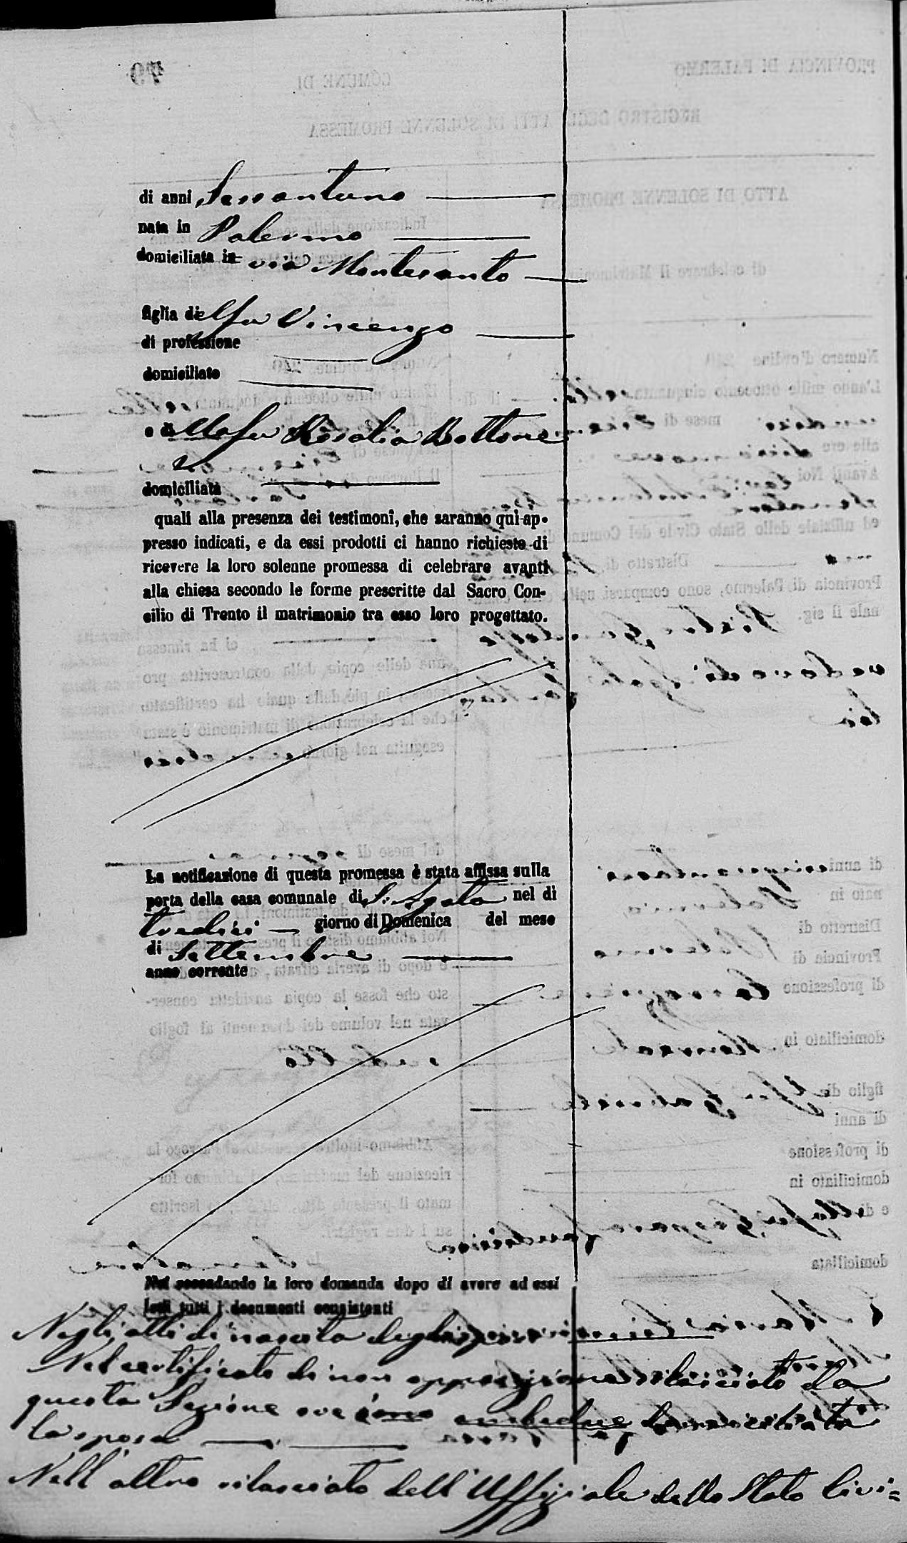 di anni Sessantuno
nata in Palermo
domiciliata in via Montesanto
figlia del fu Vincenzo
di professione
domiciliato
e della fu Rosalia Bottone
domiciliata
quali alla presenza dei testimoni, che saranno qui ap-
presso indicati, e da essi prodotti ci hanno richiesto di
ricevere la loro solenne promessa di celebrare avanti
alla chiesa secondo le forme prescritte dal Sacro Con-
silio di Trento il matrimonio tra esso loro progettato.
La notificazione di questa promessa è stata affissa sulla
porta della casa comunale di S. Agata nel dì
tredici giorno di Domenica del mese
di Settembre
anno corrente
Noi secondando la loro domanda dopo di avere ad essi
letti tutti i documenti consistenti
Negli atti di nascita degli
Nel certificato di non opposizione rilasciato da
questa Sezione ove domiciliata
la sposa
Nell'altro rilasciato dell'Uffiziale dello Stato Civi=